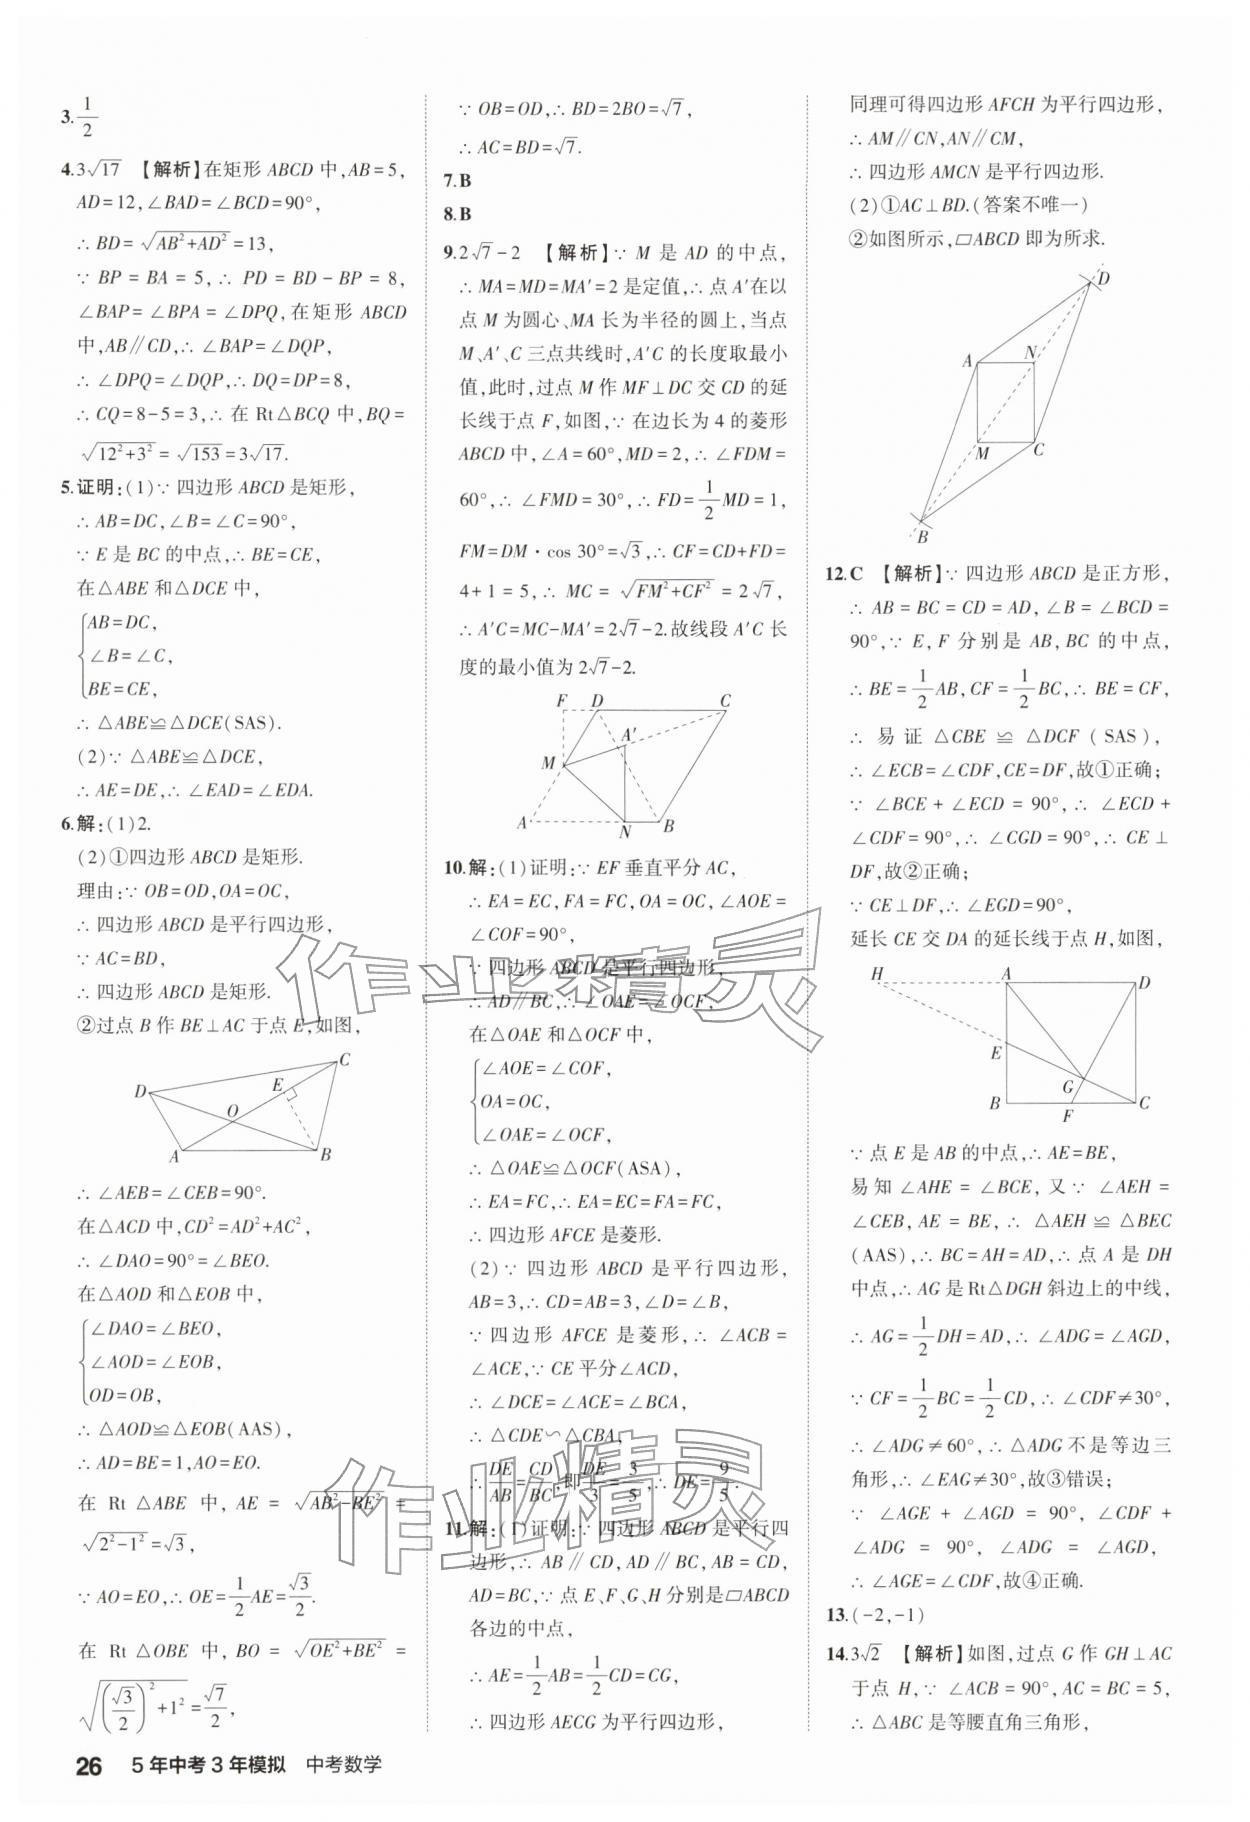 3.1/2
4.3√17 【解析】在矩形 ABCD 中,AB=5,
AD=12,∠BAD=∠BCD=90°,
∴ BD=√(AB²+AD²)=13,
∵ BP=BA=5,∴ PD=BD-BP=8,
∠BAP=∠BPA=∠DPQ,在矩形 ABCD
中,AB∥CD,∴ ∠BAP=∠DQP,
∴ ∠DPQ=∠DQP,∴ DQ=DP=8,
∴ CQ=8-5=3,∴ 在 Rt△BCQ 中,BQ=
√(12²+3²)=√153=3√17.
5.证明:(1)∵ 四边形 ABCD 是矩形,
∴ AB=DC,∠B=∠C=90°,
∵ E 是 BC 的中点,∴ BE=CE,
在△ABE 和△DCE 中,
AB=DC,
∠B=∠C,
BE=CE,
∴ △ABE≌△DCE(SAS).
(2)∵ △ABE≌△DCE,
∴ AE=DE,∴ ∠EAD=∠EDA.
6.解:(1)2.
(2)①四边形 ABCD 是矩形.
理由:∵ OB=OD,OA=OC,
∴ 四边形 ABCD 是平行四边形,
∵ AC=BD,
∴ 四边形 ABCD 是矩形.
②过点 B 作 BE⊥AC 于点 E,如图,
C
D
E
O
A
B
∴ ∠AEB=∠CEB=90°.
在△ACD 中,CD²=AD²+AC²,
∴ ∠DAO=90°=∠BEO.
在△AOD 和△EOB 中,
∠DAO=∠BEO,
∠AOD=∠EOB,
OD=OB,
∴ △AOD≌△EOB(AAS),
∴ AD=BE=1,AO=EO.
在 Rt △ABE 中,AE=√(AB²-BE²)=
√(2²-1²)=√3,
∵ AO=EO,∴ OE=1/2AE=√3/2.
在 Rt △OBE 中,BO=√(OE²+BE²)=
√((√3/2)²+1²)=√7/2,
∵ OB=OD,∴ BD=2BO=√7,
∴ AC=BD=√7.
7.B
8.B
9.2√7-2 【解析】∵ M 是 AD 的中点,
∴ MA=MD=MA′=2 是定值,∴ 点 A′在以
点 M 为圆心、MA 长为半径的圆上,当点
M、A′、C 三点共线时,A′C 的长度取最小
值,此时,过点 M 作 MF⊥DC 交 CD 的延
长线于点 F,如图,∵ 在边长为 4 的菱形
ABCD 中,∠A=60°,MD=2,∴ ∠FDM=
60°,∴ ∠FMD=30°,∴ FD=1/2MD=1,
FM=DM·cos 30°=√3,∴ CF=CD+FD=
4+1=5,∴ MC=√(FM²+CF²)=2√7,
∴ A′C=MC-MA′=2√7-2.故线段 A′C 长
度的最小值为 2√7-2.
F
D
C
A′
M
A
N
B
10.解:(1)证明:∵ EF 垂直平分 AC,
∴ EA=EC,FA=FC,OA=OC,∠AOE=
∠COF=90°,
∵ 四边形 ABCD 是平行四边形,
∴ AD∥BC,∴ ∠OAE=∠OCF,
在△OAE 和△OCF 中,
∠AOE=∠COF,
OA=OC,
∠OAE=∠OCF,
∴ △OAE≌△OCF(ASA),
∴ EA=FC,∴ EA=EC=FA=FC,
∴ 四边形 AFCE 是菱形.
(2)∵ 四边形 ABCD 是平行四边形,
AB=3,∴ CD=AB=3,∠D=∠B,
∵ 四边形 AFCE 是菱形,∴ ∠ACB=
∠ACE,∵ CE 平分∠ACD,
∴ ∠DCE=∠ACE=∠BCA,
∴ △CDE∽△CBA,
∴ DE/AB=CD/BC,即DE/3=3/5,∴ DE=9/5.
11.解:(1)证明:∵ 四边形 ABCD 是平行四
边形,∴ AB∥CD,AD∥BC,AB=CD,
AD=BC,∵ 点 E、F、G、H 分别是▱ABCD
各边的中点,
∴ AE=1/2AB=1/2CD=CG,
∴ 四边形 AECG 为平行四边形,
同理可得四边形 AFCH 为平行四边形,
∴ AM∥CN,AN∥CM,
∴ 四边形 AMCN 是平行四边形.
(2)①AC⊥BD.(答案不唯一)
②如图所示,▱ABCD 即为所求.
D
A
N
M
C
B
12.C 【解析】∵ 四边形 ABCD 是正方形,
∴ AB=BC=CD=AD,∠B=∠BCD=
90°,∵ E,F 分别是 AB,BC 的中点,
∴ BE=1/2AB,CF=1/2BC,∴ BE=CF,
∴ 易证△CBE≌△DCF(SAS),
∴ ∠ECB=∠CDF,CE=DF,故①正确;
∵ ∠BCE+∠ECD=90°,∴ ∠ECD+
∠CDF=90°,∴ ∠CGD=90°,∴ CE⊥
DF,故②正确;
∵ CE⊥DF,∴ ∠EGD=90°,
延长 CE 交 DA 的延长线于点 H,如图,
H
A
D
E
G
B
F
C
∵ 点 E 是 AB 的中点,∴ AE=BE,
易知∠AHE=∠BCE,又∵ ∠AEH=
∠CEB,AE=BE,∴ △AEH≌△BEC
(AAS),∴ BC=AH=AD,∴ 点 A 是 DH
中点,∴ AG 是 Rt△DGH 斜边上的中线,
∴ AG=1/2DH=AD,∴ ∠ADG=∠AGD,
∵ CF=1/2BC=1/2CD,∴ ∠CDF≠30°,
∴ ∠ADG≠60°,∴ △ADG 不是等边三
角形,∴ ∠EAG≠30°,故③错误;
∵ ∠AGE+∠AGD=90°,∠CDF+
∠ADG=90°,∠ADG=∠AGD,
∴ ∠AGE=∠CDF,故④正确.
13.(-2,-1)
14.3√2 【解析】如图,过点 G 作 GH⊥AC
于点 H,∵ ∠ACB=90°,AC=BC=5,
∴ △ABC 是等腰直角三角形,
作业精灵
作业精灵
26 5年中考3年模拟 中考数学